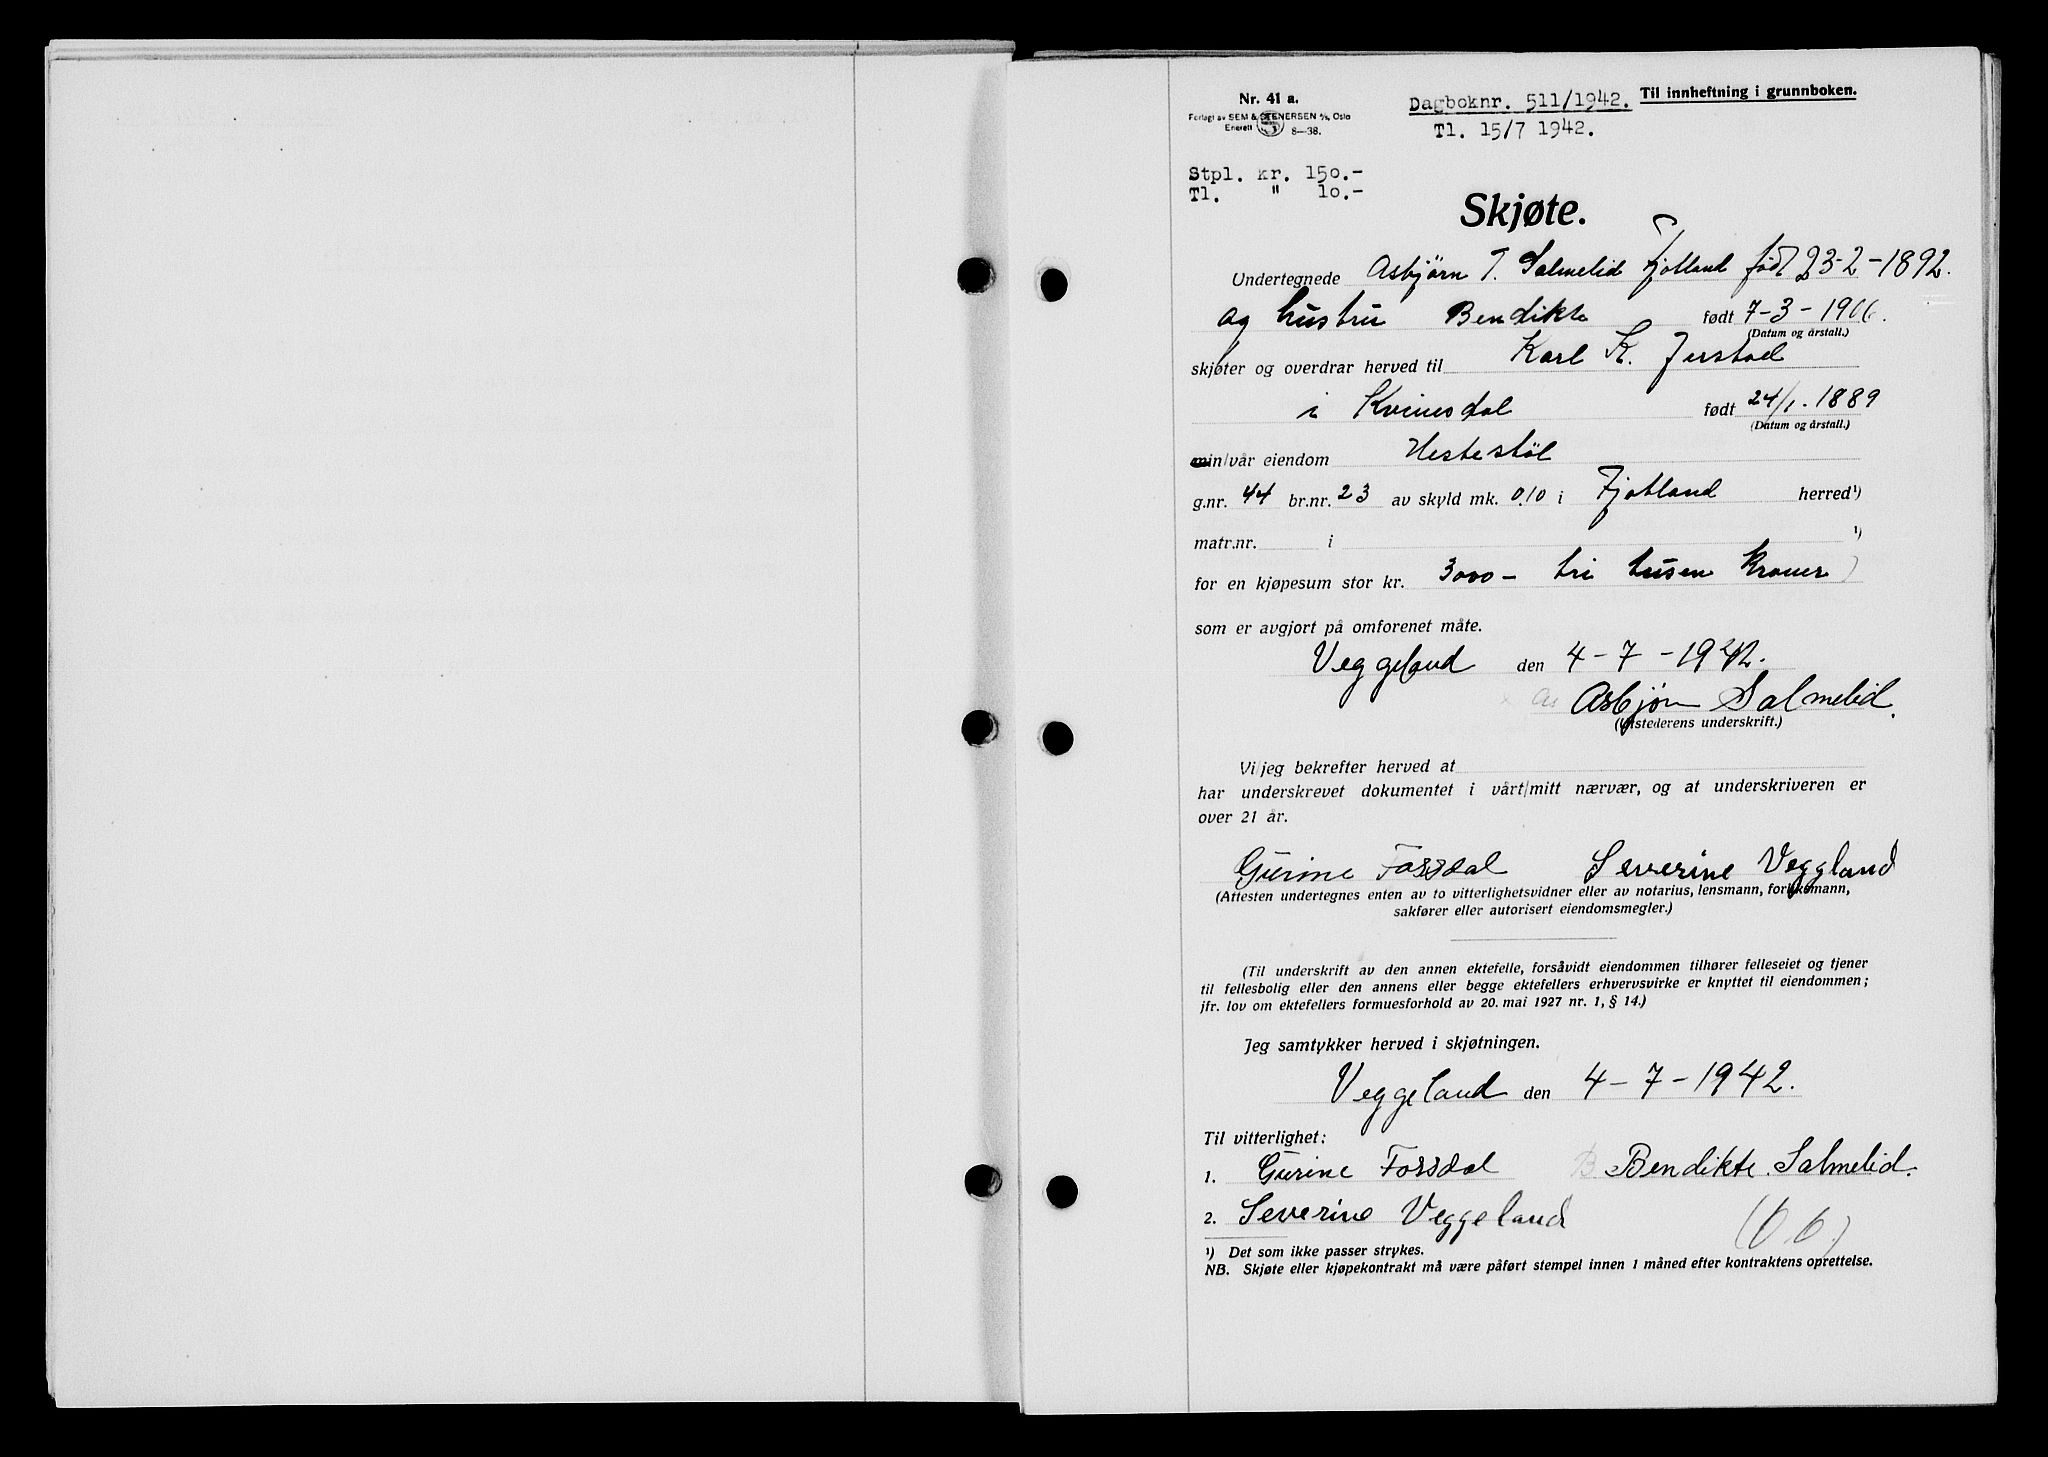 Nr. 41 a.
Forlagt av SEM & STENERSEN A/S, Oslo
Enerett S 8—38.
Dagboknr. 511/1942.
Tl. 15/7 1942.
Til innheftning i grunnboken.
Stpl. kr. 150.-
Tl. " 10.-
Skjøte.
Undertegnede Asbjörn T. Salmelid Fjotland født 23-2-1892.
og hustru Bendikte født 7-3-1906.
(Datum og årstall.)
skjøter og overdrar herved til Karl K. Jerstad
i Kvinesdal født 24/1. 1889
(Datum og årstall.)
min/vår eiendom Hestestöl
g.nr. 44 br.nr. 23 av skyld mk. 0,10 i Fjotland herred¹)
matr.nr. i ¹)
for en kjøpesum stor kr. 3000- tri tusen kroner
som er avgjort på omforenet måte.
Veggeland den 4-7-1942.
As Asbjørn Salmelid.
(Utstederens underskrift.)
Vi/jeg bekrefter herved at
har underskrevet dokumentet i vårt/mitt nærvær, og at underskriveren er
over 21 år.
Gurine Fossdal Severine Veggland
(Attesten undertegnes enten av to vitterlighetsvidner eller av notarius, lensmann, forliksmann,
sakfører eller autorisert eiendomsmegler.)
(Til underskrift av den annen ektefelle, forsåvidt eiendommen tilhører felleseiet og tjener
til fellesbolig eller den annens eller begge ektefellers erhvervsvirke er knyttet til eiendommen;
jfr. lov om ektefellers formuesforhold av 20. mai 1927 nr. 1, § 14.)
Jeg samtykker herved i skjøtningen.
Veggeland den 4-7-1942.
Til vitterlighet:
1. Gurine Fossdal B Bendikte Salmelid.
2. Severine Veggeland
¹) Det som ikke passer strykes.
NB. Skjøte eller kjøpekontrakt må være påført stempel innen 1 måned efter kontraktens oprettelse.